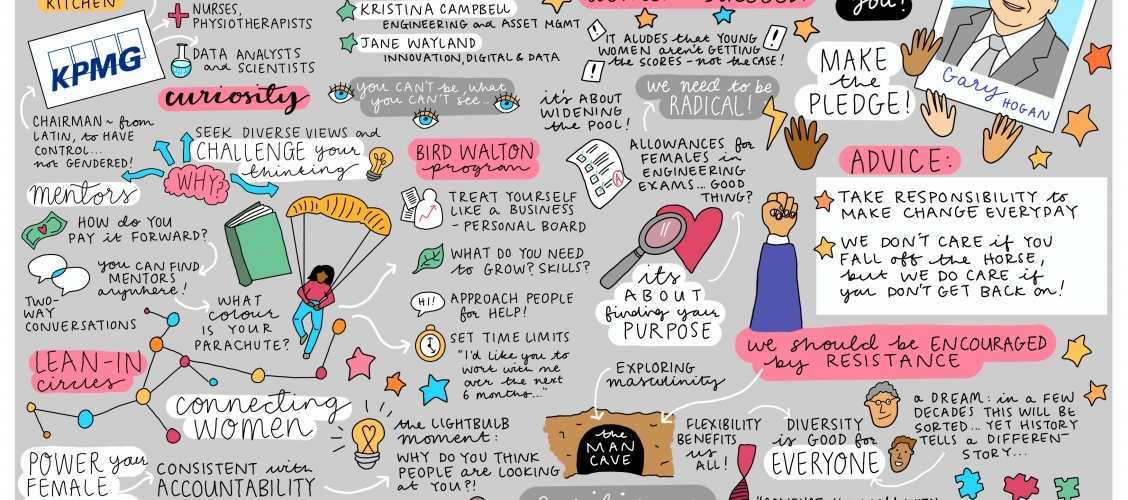 KITCHEN
NURSES,
PHYSIOTHERAPISTS
KPMG
DATA ANALYSTS
and SCIENTISTS
curiosity
CHAIRMAN ~ from
LATIN, to HAVE
CONTROL...
not GENDERED!
SEEK DIVERSE VIEWS and
CHALLENGE your
thinking
WHY?
mentors
HOW do YOU
PAY it FORWARD?
you CAN FIND
MENTORS
anywhere!
TWO-
WAY
CONVERSATIONS
WHAT
colour
IS YOUR
PARACHUTE?
LEAN-IN
circles
connecting
WOMEN
POWER your
FEMALE
CONSISTENT with
ACCOUNTABILITY
KRISTINA CAMPBELL
ENGINEERING and ASSET MGMT
JANE WAYLAND
INNOVATION, DIGITAL & DATA
you CAN'T be, what
you CAN'T see...
BIRD WALTON
program
TREAT YOURSELF
LIKE a BUSINESS
- PERSONAL BOARD
WHAT DO YOU NEED
to GROW? SKILLS?
HI!
APPROACH PEOPLE
for HELP!
SET TIME LIMITS
"I'd LIKE you to
work with me
over the next
6 months..."
the LIGHTBULB
moment:
WHY DO YOU THINK
PEOPLE are LOOKING
at YOU?!
IT ALUDES that YOUNG
WOMEN aren't GETTING
the SCORES - not the CASE!
it's ABOUT
WIDENING
the POOL!
we need to be
RADICAL!
ALLOWANCES for
FEMALES in
ENGINEERING
EXAMS... GOOD
THING?
A
it's
ABOUT
finding your
PURPOSE
EXPLORING
masculinity
the
MAN
CAVE
FLEXIBILITY
BENEFITS
us
ALL!
you!
MAKE
the
PLEDGE!
Gary
HOGAN
ADVICE:
TAKE RESPONSIBILITY to
MAKE CHANGE EVERYDAY
WE DON'T CARE if YOU
FALL off the HORSE,
but WE DO CARE if
you DON'T GET BACK on!
we should be ENCOURAGED
by RESISTANCE
DIVERSITY
is GOOD for
EVERYONE
a DREAM: in a FEW
DECADES THIS WILL BE
SORTED... YET HISTORY
TELLS a DIFFERENT
STORY...